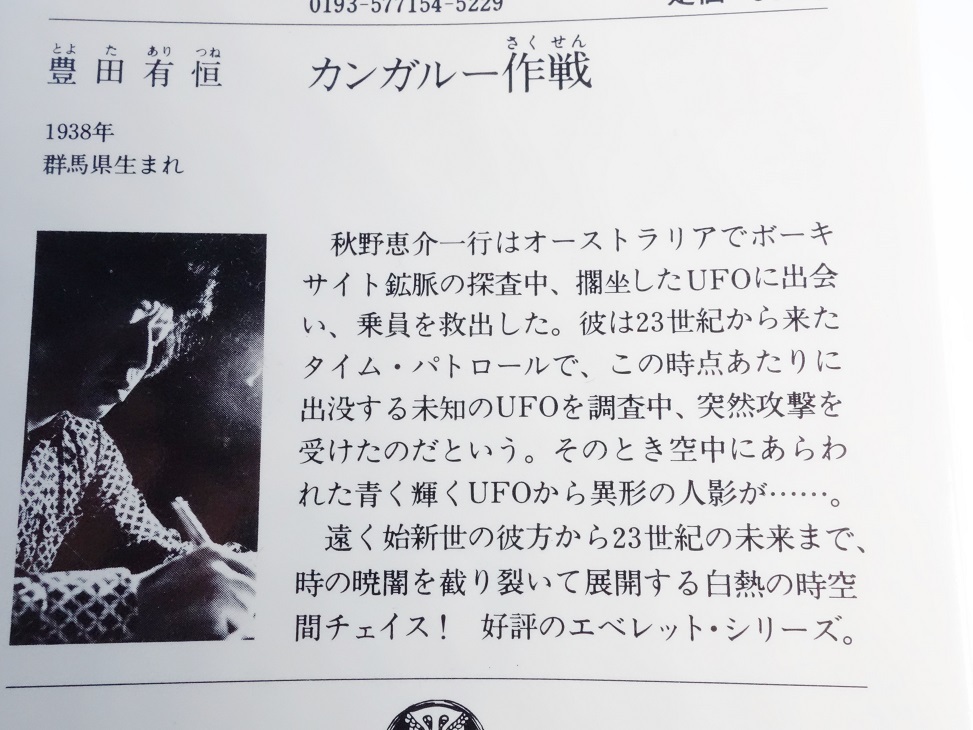 0193-577154-5229
とよ た あり つね
豊田有恒
さくせん
カンガルー作戦
1938年
群馬県生まれ
秋野恵介一行はオーストラリアでボーキ
サイト鉱脈の探査中、擱坐したUFOに出会
い、乗員を救出した。彼は23世紀から来た
タイム・パトロールで、この時点あたりに
出没する未知のUFOを調査中、突然攻撃を
受けたのだという。そのとき空中にあらわ
れた青く輝くUFOから異形の人影が……。
遠く始新世の彼方から23世紀の未来まで、
時の暁闇を截り裂いて展開する白熱の時空
間チェイス! 好評のエベレット・シリーズ。